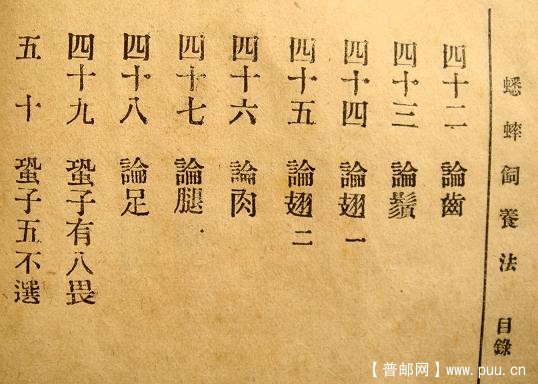 蟋蟀飼養法 目錄
四十二 論齒
四十三 論鬚
四十四 論翅 一
四十五 論翅 二
四十六 論肉
四十七 論腿
四十八 論足
四十九 蛩子有八畏
五十 蛩子五不選
【普邮网】www.puu.cn